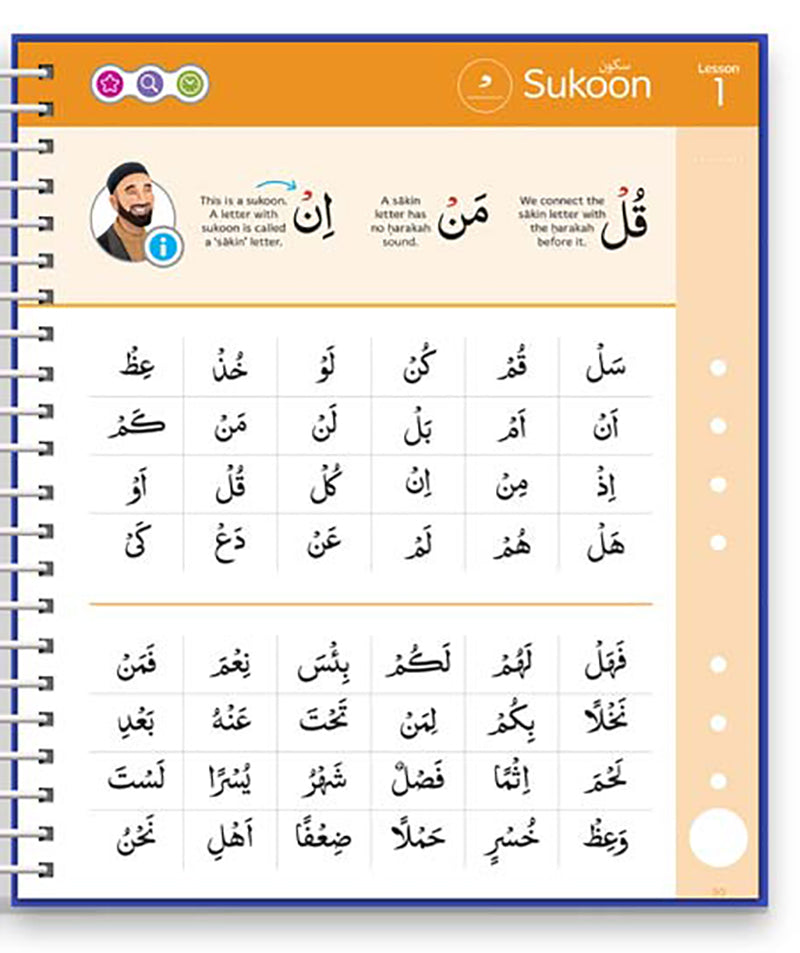 Lesson 1
سكون
Sukoon
This is a sukoon. A letter with sukoon is called a 'sākin' letter.
اِنْ
A sākin letter has no ḥarakah sound.
مَنْ
We connect the sākin letter with the ḥarakah before it.
قُلْ
سَلْ قُمْ كُنْ لَوْ خُذْ عِظْ
اَنْ اَمْ بَلْ لَنْ مَنْ كَمْ
اِذْ مِنْ اِنْ كُلْ قُلْ اَوْ
هَلْ هُمْ لَمْ عَنْ دَعْ كَىْ
فَهَلْ لَهُمْ لَكُمْ بِئْسَ نِعْمَ فَمَنْ
نَخْلًا بِكُمْ لِمَنْ تَحْتَ عَنْهُ بَعْدِ
لَحْمَ اِثْمًا فَصْلٌ شَهْرُ يُسْرًا لَسْتَ
وَعِظْ خُسْرٍ حَمْلًا ضِعْفًا اَهْلِ نَحْنُ